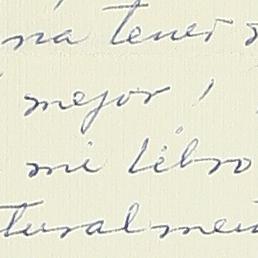 na tener
mejor,
mi libro
turalmen